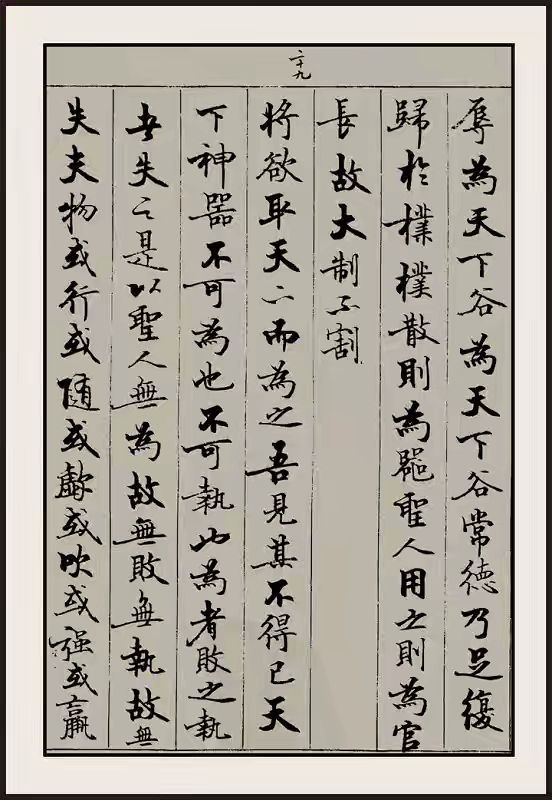 二十九
辱為天下谷為天下谷常德乃足復
歸於樸樸散則為器聖人用之則為官
長故大制不割
將欲取天下而為之吾見其不得已天
下神器不可為也不可執也為者敗之執
者失之是以聖人無為故無敗無執故無
失夫物或行或隨或歔或吹或强或羸